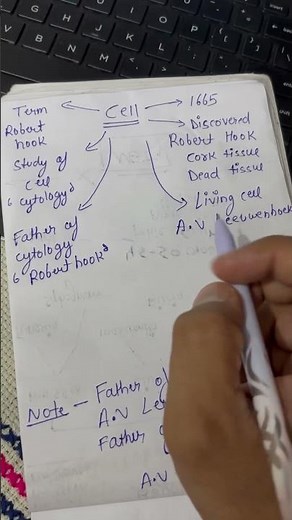 Cell
Term
Robert
hook
Study of
cell
6 cytology
Father of
cytology
6 Robert hook
1665
Discovered
Robert Hook
Cork tissue
Dead tissue
Living cell
A.V Leeuwenhoek
Note - Father of
A.V Le
Father
A.V